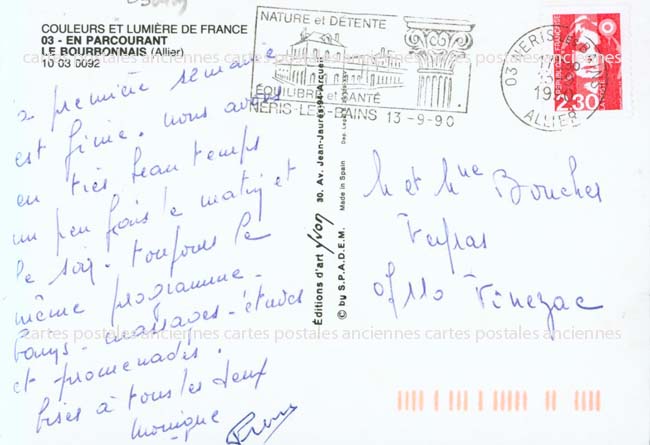 COULEURS ET LUMIÈRE DE FRANCE
03 - EN PARCOURANT
LE BOURBONNAIS (Allier)
10 03 0092
a première semaine
est finie. nous avons
eu très beau temps
un peu frais le matin et
le soir. toujours le
même programme -
bains - massages -
et promenades.
bises à tous les deux
Monique
NATURE et DÉTENTE
ÉQUILIBRE et SANTÉ
NÉRIS-LES-BAINS 13-9-90
03 NERIS
ALLIER
2,30
Éditions d'art yvon 30, Av. Jean-Jaurès-94-Arcueil
© by S.P.A.D.E.M. Made in Spain
M et Mme
07110 Vinezac
cartes postales anciennes cartes postales anciennes cartes postales anciennes
cartes postales anciennes cartes postales anciennes cartes postales anciennes